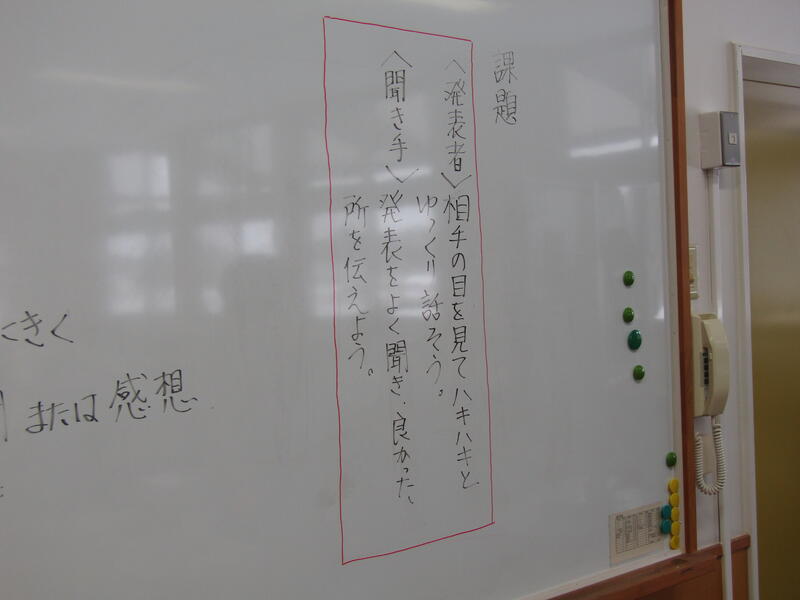 課題
〈発表者〉相手の目を見てハキハキと、
ゆっくり話そう。
〈聞き手〉発表をよく聞き、良かった、
所を伝えよう。
にきく
または感想